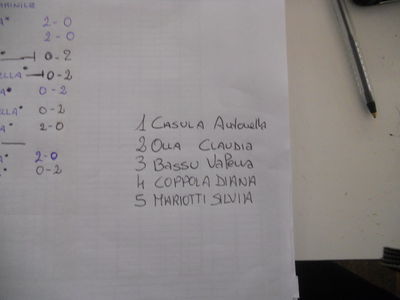 2-0
2-0
0-2
0-2
0-2
0-2
2-0
2-0
0-2
1 CASULA Antonella
2 Olla CLAUDIA
3 BASSU
4 COPPOLA DIANA
5 MARIOTTI SILVIA